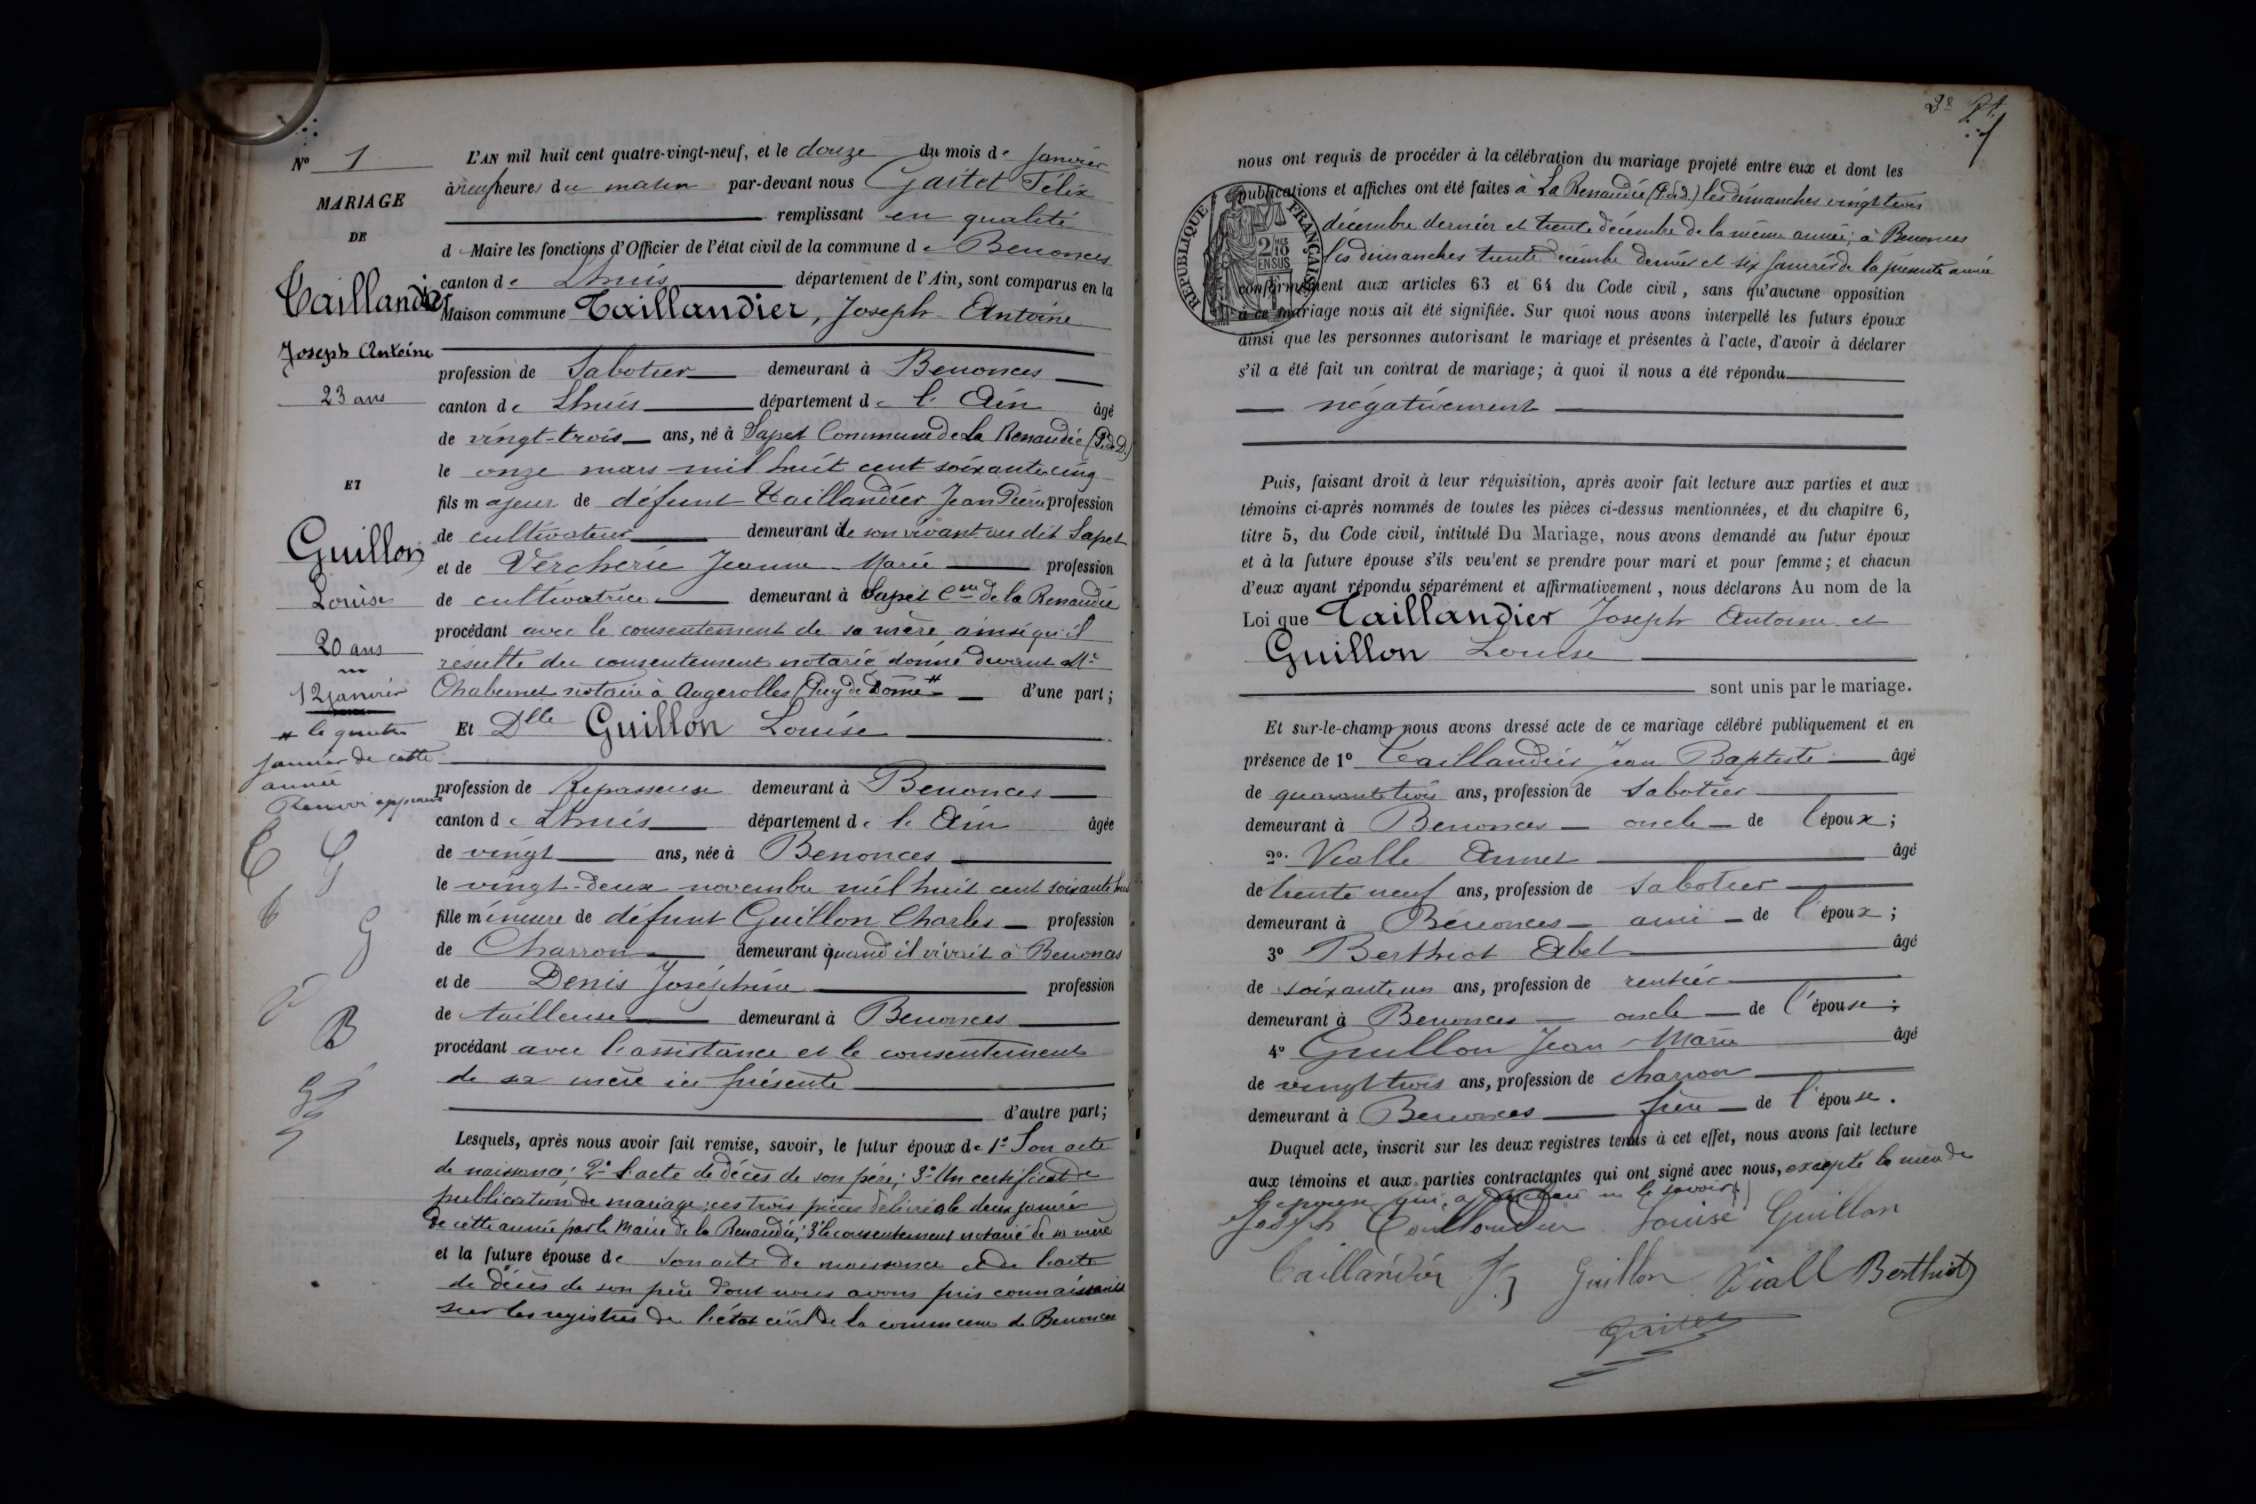 N° 1
MARIAGE
DE
Taillandier
Joseph Antoine
23 ans
ET
Guillon
Louise
20 ans
12 janvier
# le quatre
janvier de cette
année
Renvoi approuvé
L'AN mil huit cent quatre-vingt-neuf, et le douze du mois de janvier
à neuf heures du matin par-devant nous Gaitet Félix
remplissant en qualité
de Maire les fonctions d'Officier de l'état civil de la commune de Benonces
canton de Lhuis département de l'Ain, sont comparus en la
Maison commune Taillandier, Joseph Antoine
profession de Sabotier demeurant à Benonces
canton de Lhuis département de l'Ain âgé
de vingt-trois ans, né à Sapet Commune de La Renaudie (P.de D.)
le onze mars mil huit cent soixante cinq
fils majeur de défunt Taillandier Jean Pierre profession
de cultivateur demeurant de son vivant au dit Sapet
et de Vercherie Jeanne Marie profession
de cultivatrice demeurant à Sapet Cne de la Renaudie
procédant avec le consentement de sa mère ainsi qu'il
résulte du consentement notarié donné devant Me
Chabernet notaire à Augerolles (Puy de Dôme # d'une part;
Et Dlle Guillon Louise
profession de Repasseuse demeurant à Benonces
canton de Lhuis département de l'Ain âgée
de vingt ans, née à Benonces
le vingt-deux novembre mil huit cent soixante huit
fille mineure de défunt Guillon Charles profession
de Charron demeurant quand il vivait à Benonces
et de Denis Joséphine profession
de tailleuse demeurant à Benonces
procédant avec l'assistance et le consentement
de sa mère ici présente
d'autre part;
Lesquels, après nous avoir fait remise, savoir, le futur époux de 1° Son acte
de naissance; 2° l'acte de décès de son père; 3° Un certificat de
publication de mariage; ces trois pièces délivrées le deux janvier
de cette année par le Maire de la Renaudie; 3° le consentement notarié de sa mère
et la future épouse de son acte de naissance et de l'acte
de décès de son père dont nous avons pris connaissance
sur les registres de l'état civil de la commune de Benonces
nous ont requis de procéder à la célébration du mariage projeté entre eux et dont les
publications et affiches ont été faites à La Renaudie (P.de D.) les dimanches vingt trois
décembre dernier et trente décembre de la même année; à Benonces
les dimanches trente décembre dernier et six janvier de la présente année
conformément aux articles 63 et 64 du Code civil, sans qu'aucune opposition
à ce mariage nous ait été signifiée. Sur quoi nous avons interpellé les futurs époux
ainsi que les personnes autorisant le mariage et présentes à l'acte, d'avoir à déclarer
s'il a été fait un contrat de mariage; à quoi il nous a été répondu
négativement
RÉPUBLIQUE FRANÇAISE
EN SUS
Puis, faisant droit à leur réquisition, après avoir fait lecture aux parties et aux
témoins ci-après nommés de toutes les pièces ci-dessus mentionnées, et du chapitre 6,
titre 5, du Code civil, intitulé Du Mariage, nous avons demandé au futur époux
et à la future épouse s'ils veulent se prendre pour mari et pour femme; et chacun
d'eux ayant répondu séparément et affirmativement, nous déclarons Au nom de la
Loi que Taillandier Joseph Antoine et
Guillon Louise
sont unis par le mariage.
Et sur-le-champ nous avons dressé acte de ce mariage célébré publiquement et en
présence de 1° Taillandier Jean Baptiste âgé
de quarante trois ans, profession de sabotier
demeurant à Benonces oncle de l'époux;
2° Vialle Annet âgé
de trente neuf ans, profession de sabotier
demeurant à Bénonces ami de l'époux;
3° Berthiot Abel âgé
de soixante un ans, profession de rentier
demeurant à Benonces oncle de l'épouse;
4° Guillon Jean Marie âgé
de vingt trois ans, profession de charron
demeurant à Benonces frère de l'épouse.
Duquel acte, inscrit sur les deux registres tenus à cet effet, nous avons fait lecture
aux témoins et aux parties contractantes qui ont signé avec nous, excepté la mère de
l'épouse qui a déclaré ne le savoir
Joseph Taillandier Louise Guillon
Taillandier Guillon Viall Berthiot
Gaitet